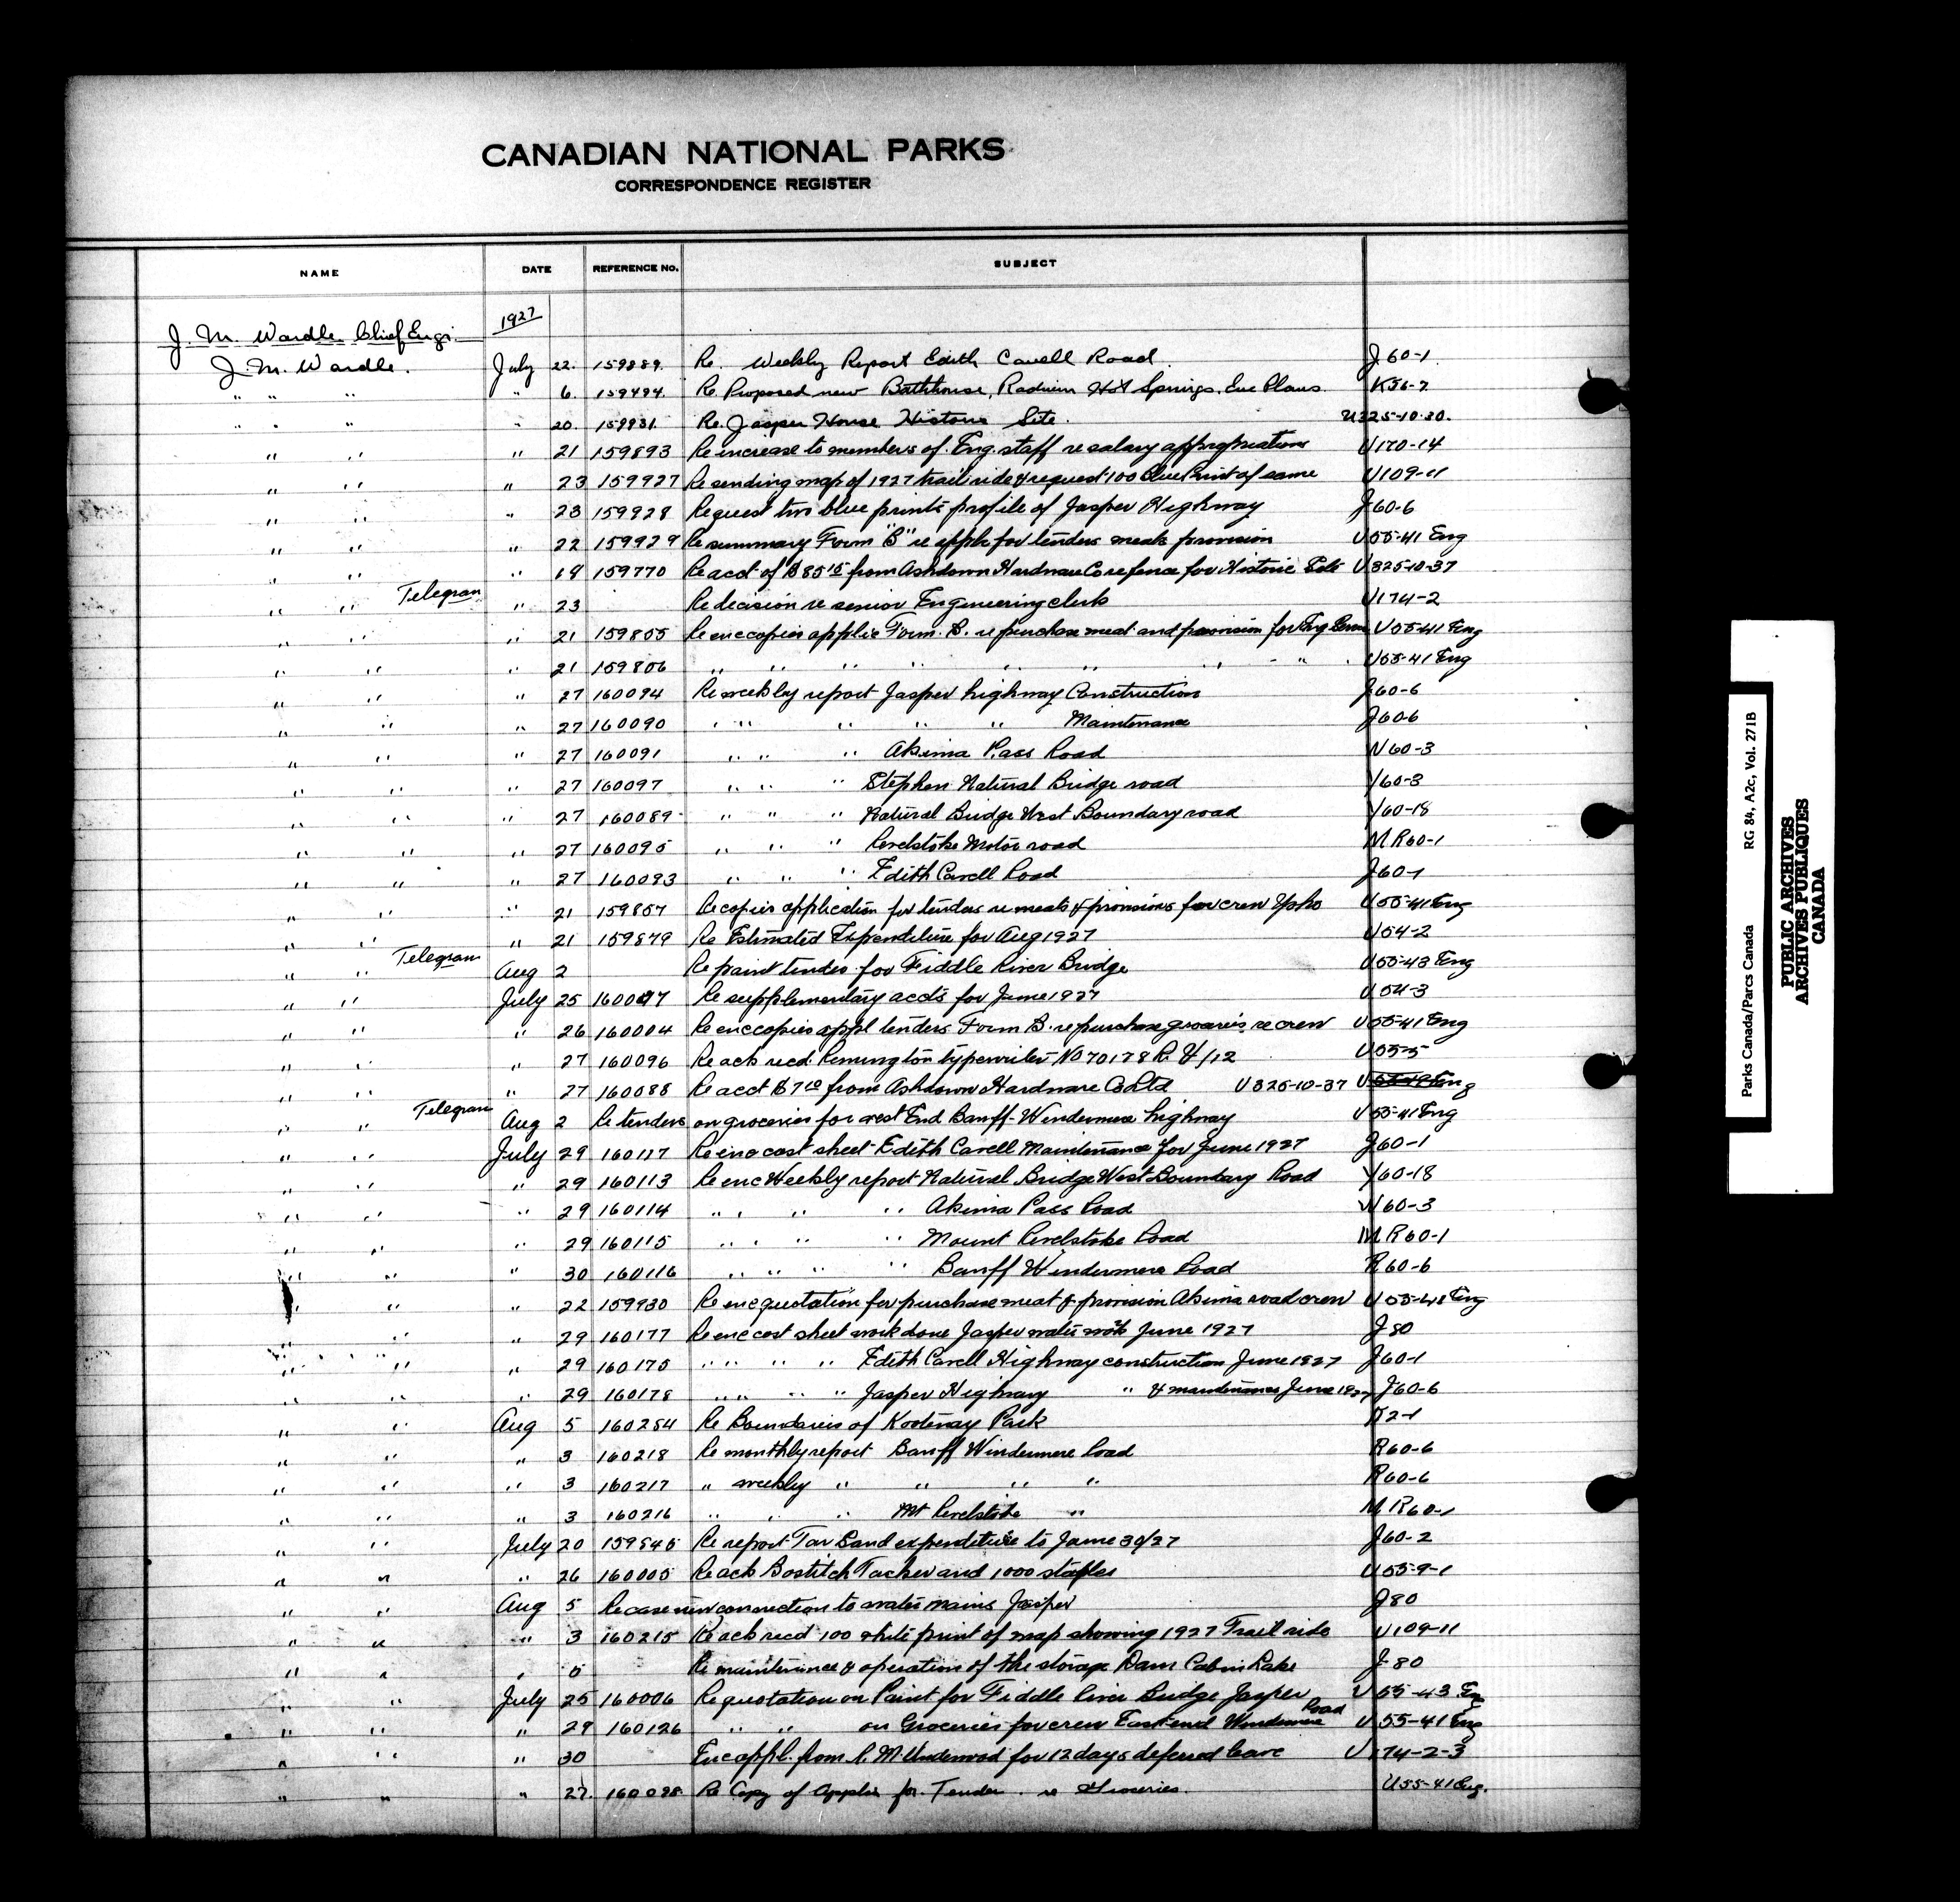 CANADIAN NATIONAL PARKS
CORRESPONDENCE REGISTER
NAME DATE REFERENCE No. SUBJECT
1927
J. M. Wardle Chief Engr.
J. M. Wardle. July 22. 159889. Re. Weekly Report Edith Cavell Road. J60-1
" " " " 6. 159494. Re Proposed new Bathhouse, Radium Hot Springs. Enc Plans K56-2
" " " " 20. 159931. Re. Jasper House Historic Site. U325-10-30.
" " " 21 159893 Re increase to members of Eng. staff re salary appropriations U170-14
" " " 23 159927 Re sending map of 1927 trail ride & request 100 blue print of same U109-11
" " " 23 159928 Request two blue prints profile of Jasper Highway J60-6
" " " 22 159929 Re summary Form "B" re appli for tenders meats provision U55-41 Eng
" " " 19 159770 Re acct of $85 15 from Ashdown Hardware Co re fence for Historic Site U325-10-37
" " Telegram " 23 Re decision re senior Engineering clerk U174-2
" " " 21 159805 Re enc copies applic Form. B. re purchase meat and provision for Eng U55-41 Eng
" " " 21 159806 " " " " " " " " " U55-41 Eng
" " " 27 160094 Re weekly report Jasper highway Construction J60-6
" " " 27 160090 " " " " " Maintenance J60-6
" " " 27 160091 " " " Akimina Pass Road W60-3
" " " 27 160097 " " " Stephen Natural Bridge road Y60-3
" " " 27 160089 " " " Natural Bridge West Boundary road Y60-18
" " " 27 160095 " " " Revelstoke Motor road M R60-1
" " " 27 160093 " " " Edith Cavell Road J60-1
" " " 21 159857 Re copies application for tenders re meats & provisions for crew Yoho U55-41 Eng
" " " 21 159879 Re Estimated Expenditure for Aug 1927 U54-2
" " Telegram Aug 2 Re paint tender for Fiddle River Bridge U55-43 Eng
" " July 25 160047 Re supplementary accts for June 1927 U54-3
" " " 26 160004 Re enc copies appl tenders Form B. re purchase groceries re crew U55-41 Eng
" " " 27 160096 Re ack recd Remington typewriter No 70178 U55-5
" " " 27 160088 Re acct $7 10 from Ashdown Hardware Co Ltd U325-10-37
" " Telegram Aug 2 Re tenders on groceries for west End Banff-Windermere highway U55-41 Eng
" " July 29 160117 Re enc cost sheet Edith Cavell Maintenance for June 1927 J60-1
" " " 29 160113 Re enc Weekly report Natural Bridge West Boundary Road Y60-18
" " " 29 160114 " " " " Akimina Pass Road W60-3
" " " 29 160115 " " " " Mount Revelstoke Road M R60-1
" " " 30 160116 " " " " Banff Windermere Road R60-6
" " " 22 159930 Re enc quotation for purchase meat & provision Akimina road crew U55-48 Eng
" " " 29 160177 Re enc cost sheet work done Jasper water works June 1927 J80
" " " 29 160175 " " " " Edith Cavell Highway construction June 1927 J60-1
" " " 29 160178 " " " " Jasper Highway " & maintenance June 1927 J60-6
" " Aug 5 160284 Re Boundaries of Kootenay Park K2-1
" " " 3 160218 Re monthly report Banff Windermere Road R60-6
" " " 3 160217 " weekly " " " " R60-6
" " " 3 160216 " " " Mt Revelstoke " M R60-1
" " July 20 159845 Re report Tar Sand expenditure to June 30/27 J60-2
" " " 26 160005 Re ack Bostitch Tacker and 1000 staples U55-9-1
" " Aug 5 Re case new connection to water mains Jasper J80
" " " 3 160215 Re ack recd 100 white print of map showing 1927 Trail ride U109-11
" " " 5 Re maintenance & operation of the storage Dam Cabin Lake J-80
" " July 25 160006 Re quotation on Paint for Fiddle River Bridge Jasper U55-43 Eng
" " " 29 160126 " " on Groceries for crew East end Windermere Road U55-41 Eng
" " " 30 Enc appl. from R. M. Underwood for 12 days deferred leave U174-2-3
" " " 27. 160098 Re Copy of Applic for Tender re Groceries. U55-41 Eng.
Parks Canada/Parcs Canada RG 84, A2c, Vol. 271B
PUBLIC ARCHIVES
ARCHIVES PUBLIQUES
CANADA